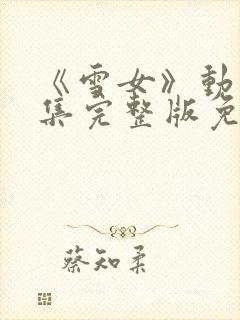 《雪女》動
集完整版免
蔡知柔